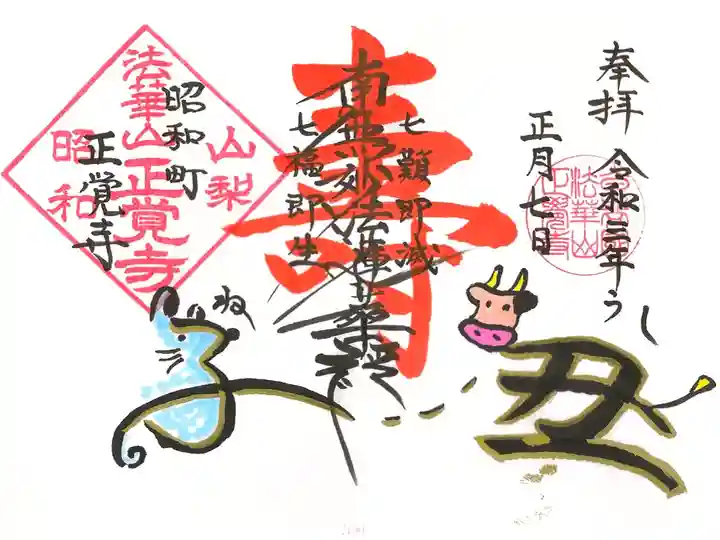 奉拝
令和三年うし
正月七日
丑
寿
七難即滅
南無妙法蓮華経
七福即生
ね
子
山梨
法華山正覚寺
昭和
昭和町
正覚寺
法華山